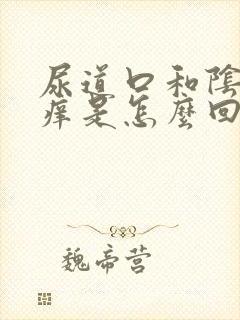 尿道口和陰
癢是怎麼回
魏帝营